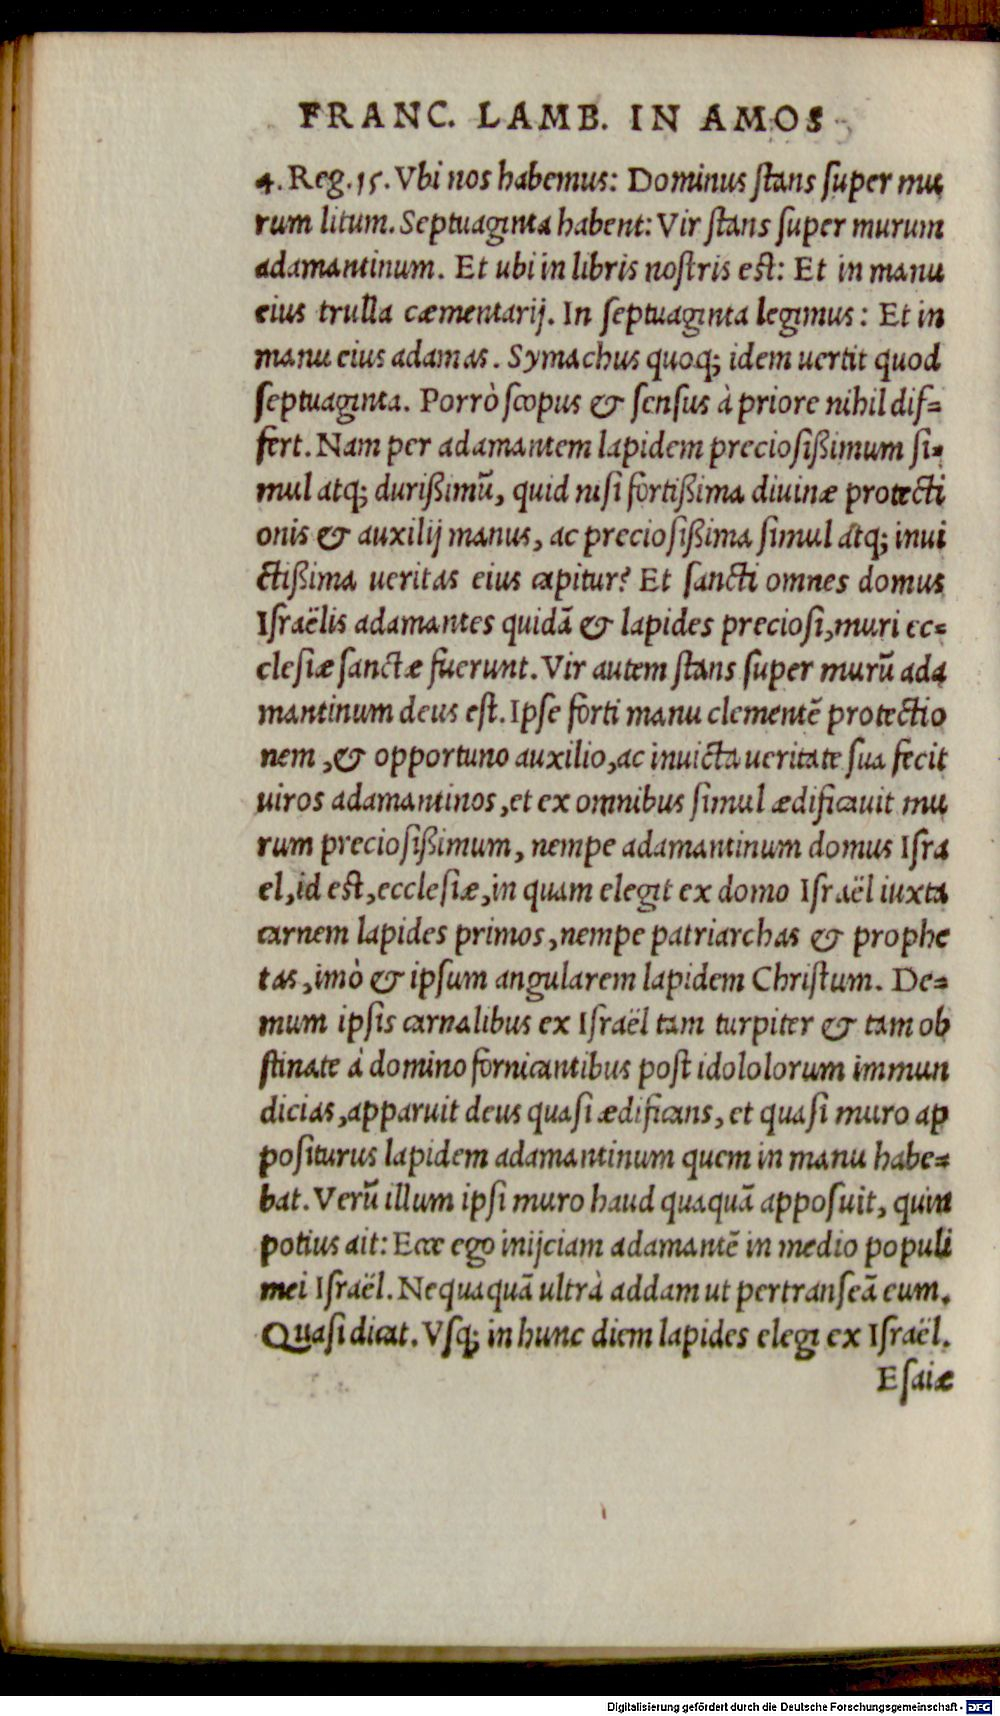 FRANC. LAMB. IN AMOS
4. Reg. 15. Vbi nos habemus: Dominus ſtans ſuper mu
rum litum. Septuaginta habent: Vir ſtans ſuper murum
adamantinum. Et ubi in libris noſtris eſt: Et in manu
eius trulla cæmentarij. In ſeptuaginta legimus: Et in
manu eius adamas. Symachus quoq; idem uertit quod
ſeptuaginta. Porrò ſcopus & ſenſus à priore nihil dif=
fert. Nam per adamantem lapidem precioſißimum ſi=
mul atq; durißimũ, quid niſi fortißima diuinæ protecti
onis & auxilij manus, ac precioſißima ſimul atq; inui
ctißima ueritas eius capitur? Et ſancti omnes domus
Iſraëlis adamantes quidã & lapides precioſi, muri ec=
cleſiæ ſanctæ fuerunt. Vir autem ſtans ſuper murũ ada
mantinum deus eſt. Ipſe forti manu clementẽ protectio
nem, & opportuno auxilio, ac inuicta ueritate ſua fecit
uiros adamantinos, et ex omnibus ſimul ædificauit mu
rum precioſißimum, nempe adamantinum domus Iſra
el, id eſt, eccleſiæ, in quam elegit ex domo Iſraël iuxta
carnem lapides primos, nempe patriarchas & prophe
tas, imò & ipſum angularem lapidem Chriſtum. De=
mum ipſis carnalibus ex Iſraël tam turpiter & tam ob
ſtinate à domino fornicantibus poſt idololorum immun
dicias, apparuit deus quaſi ædificans, et quaſi muro ap
poſiturus lapidem adamantinum quem in manu habe=
bat. Verũ illum ipſi muro haud quaquã appoſuit, quin
potius ait: Ecce ego inijciam adamantẽ in medio populi
mei Iſraël. Nequaquã ultrà addam ut pertranſeã eum.
Quaſi dicat. Vſq; in hunc diem lapides elegi ex Iſraël.
Eſaiæ
Digitalisierung gefördert durch die Deutsche Forschungsgemeinschaft - DFG